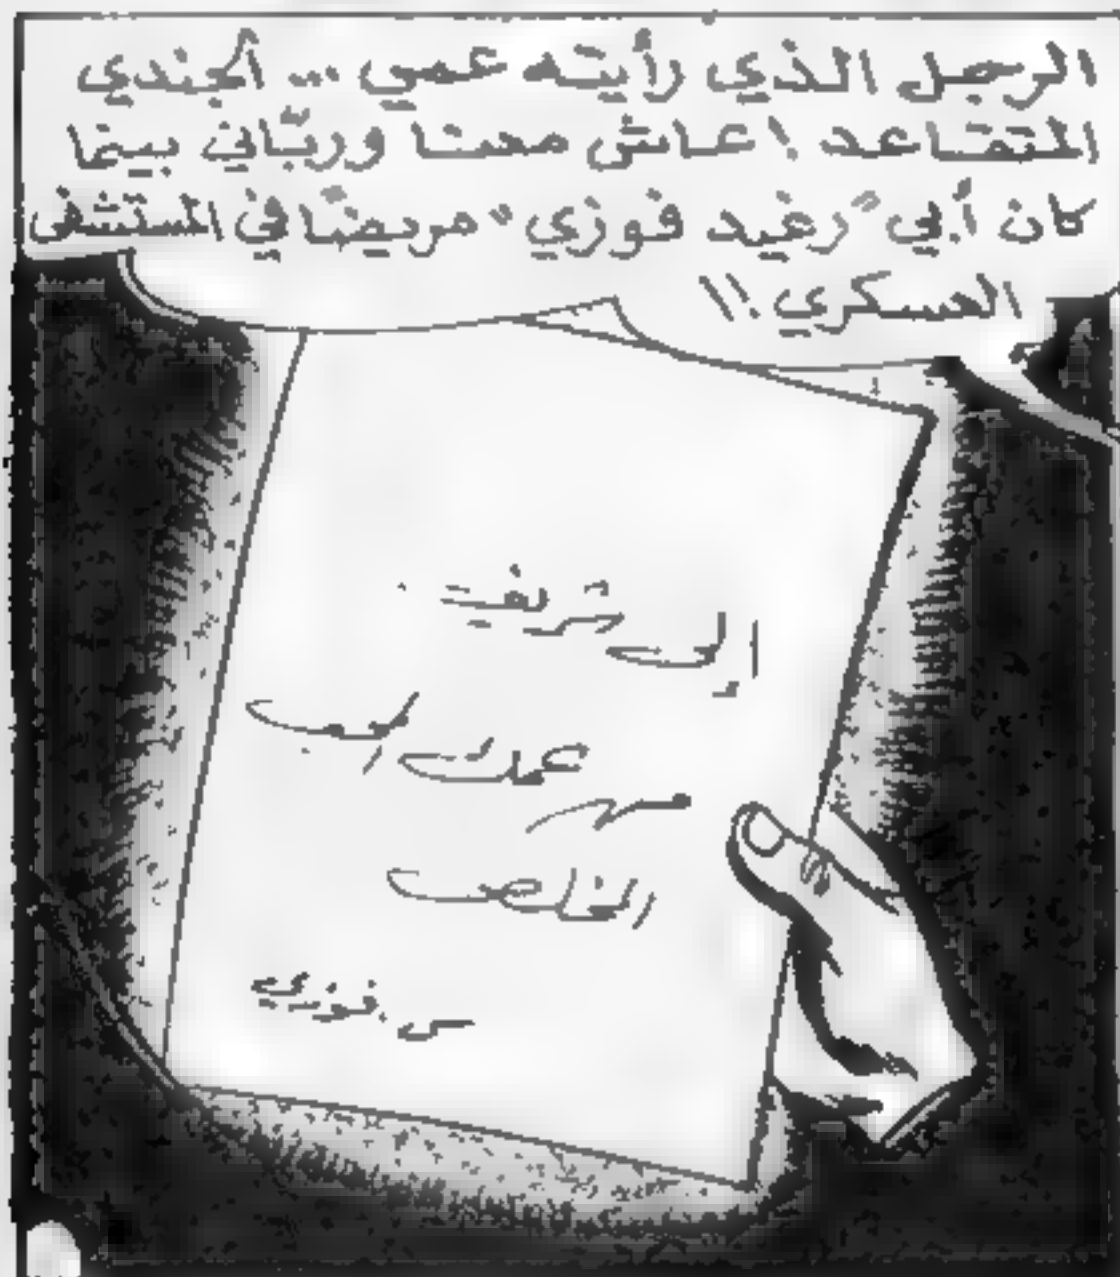 الرجل الذي رأيته عمي ... الجندي
المتقاعد ! عاش معنا وربّاني بينما
كان أبي "رغيد فوزي" مريضًا في المستشفى
العسكري !!
إلى شريف
عمك المحب
المخلص
س . فوزي